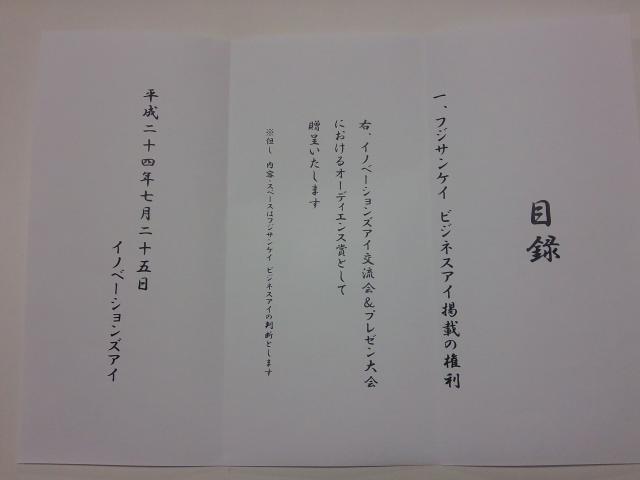 目録
一、フジサンケイ ビジネスアイ掲載の権利
右、イノベーションズアイ交流会＆プレゼン大会
におけるオーディエンス賞として
贈呈いたします
※但し 内容・スペースはフジサンケイ ビジネスアイの判断とします
平成二十四年七月二十五日
イノベーションズアイ